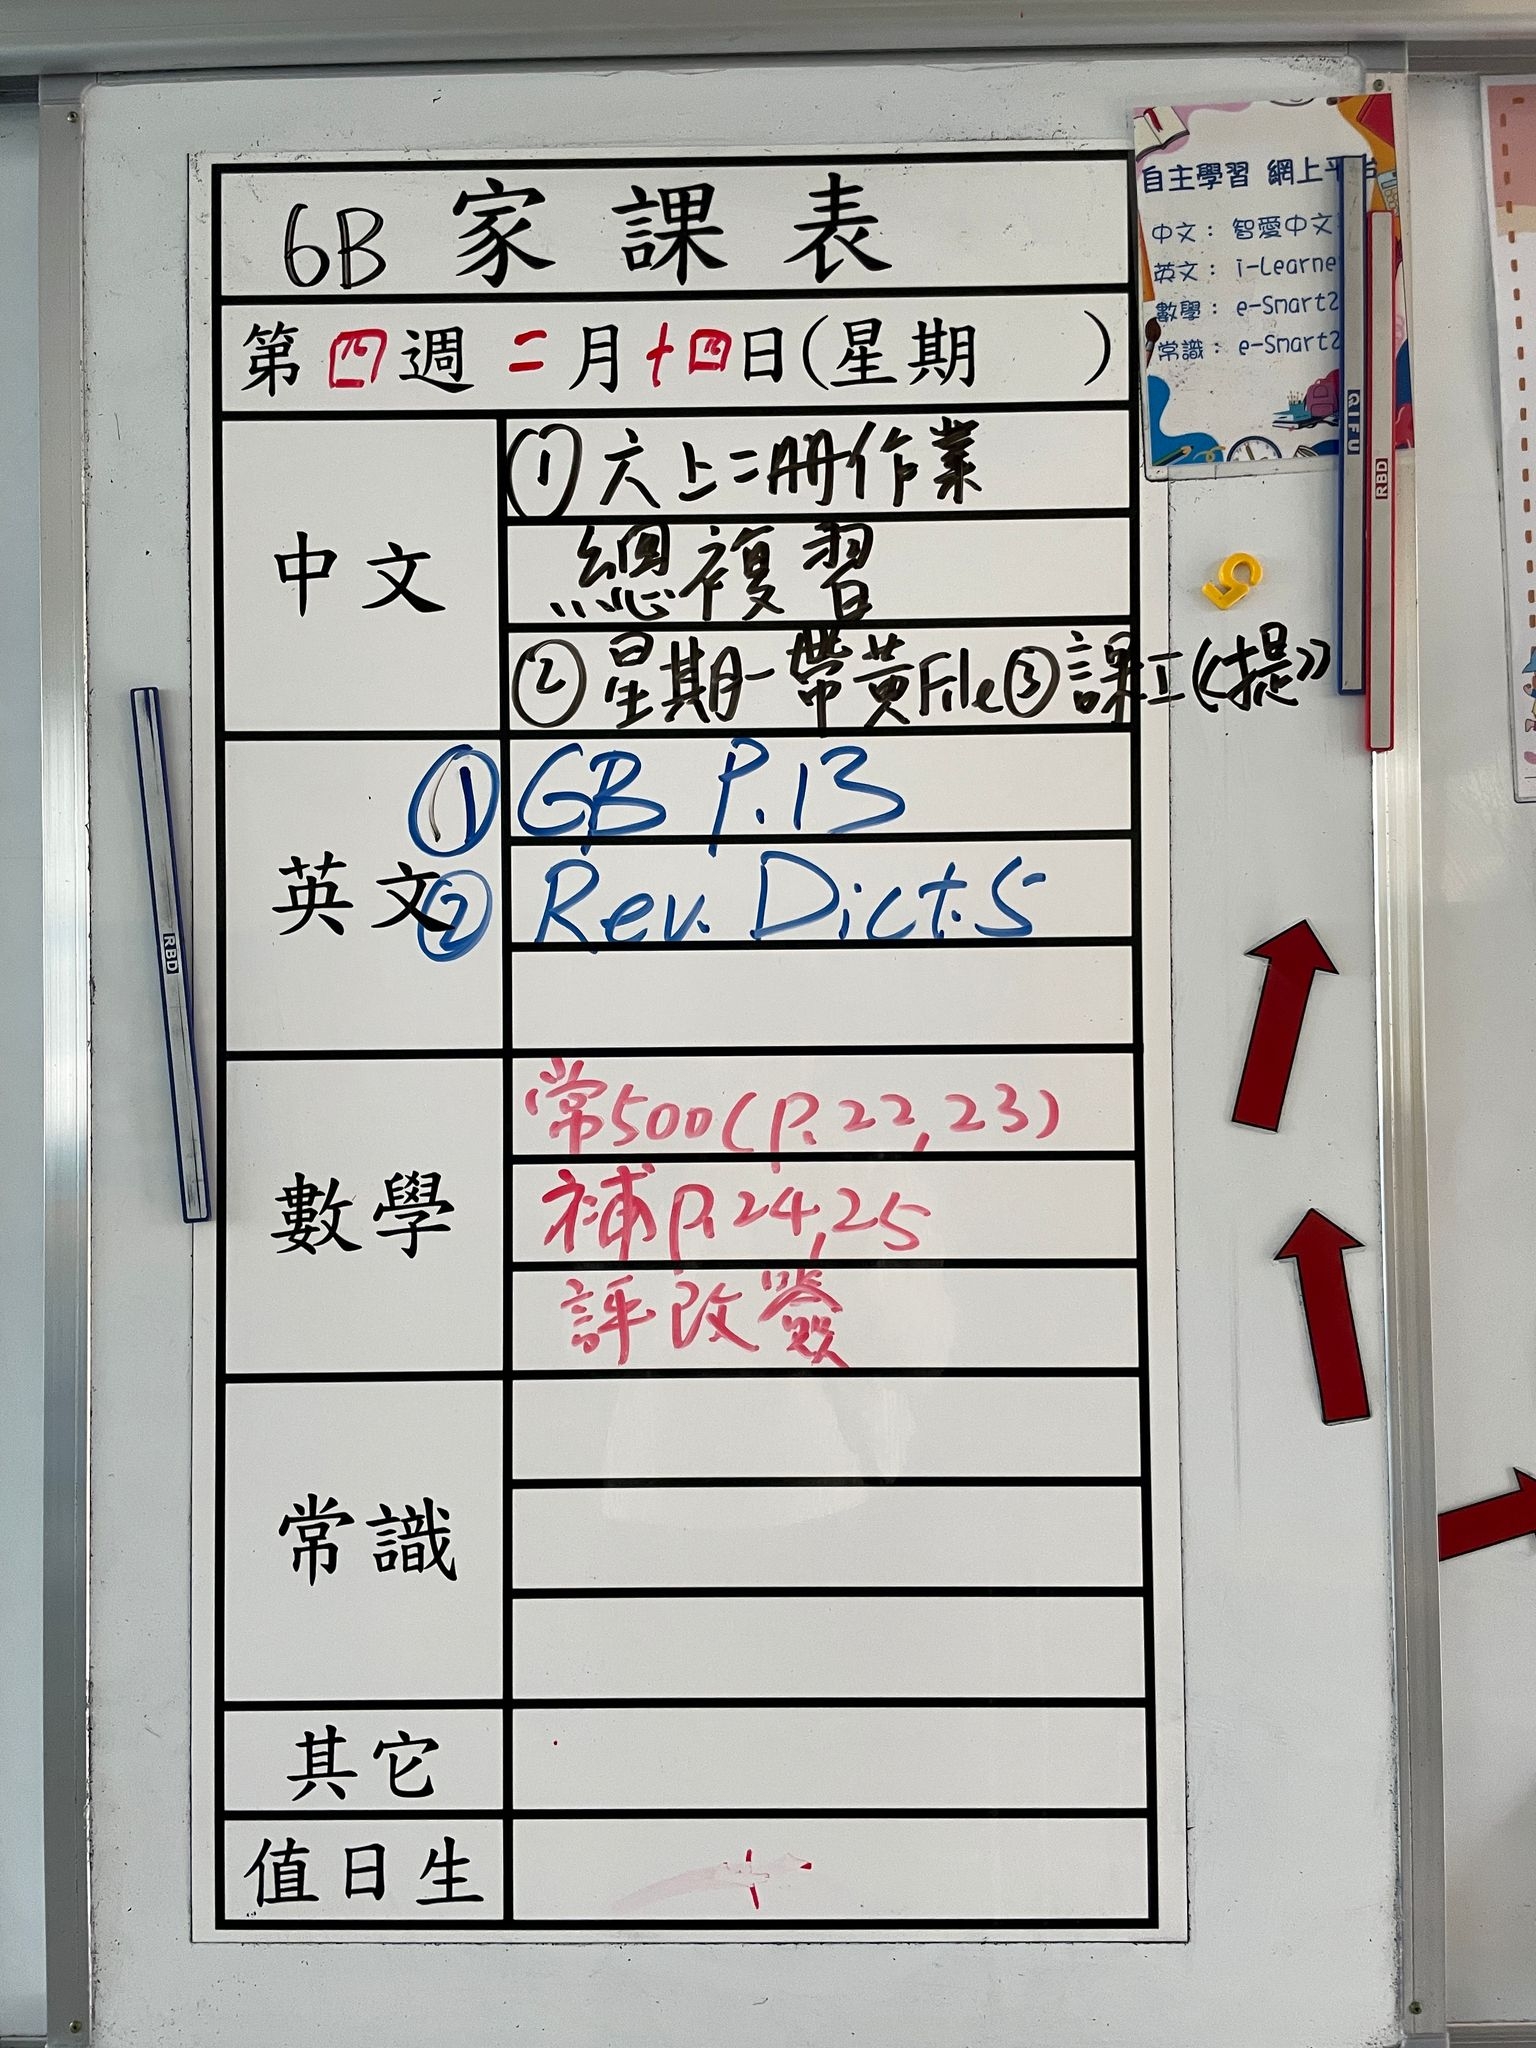 6B 家課表
第四週二月十四日(星期 )
中文
①六上二冊作業
總複習
②星期一帶黃File③課工(提)
英文
①GB P.13
②Rev. Dict.5
數學
常500(P.22,23)
補P.24,25
評改簽
常識
其它
值日生
自主學習 網上平台
中文：智愛中文
英文：i-Learne
數學：e-Smart2
常識：e-Smart2
QIFU
RBD
5
RBD